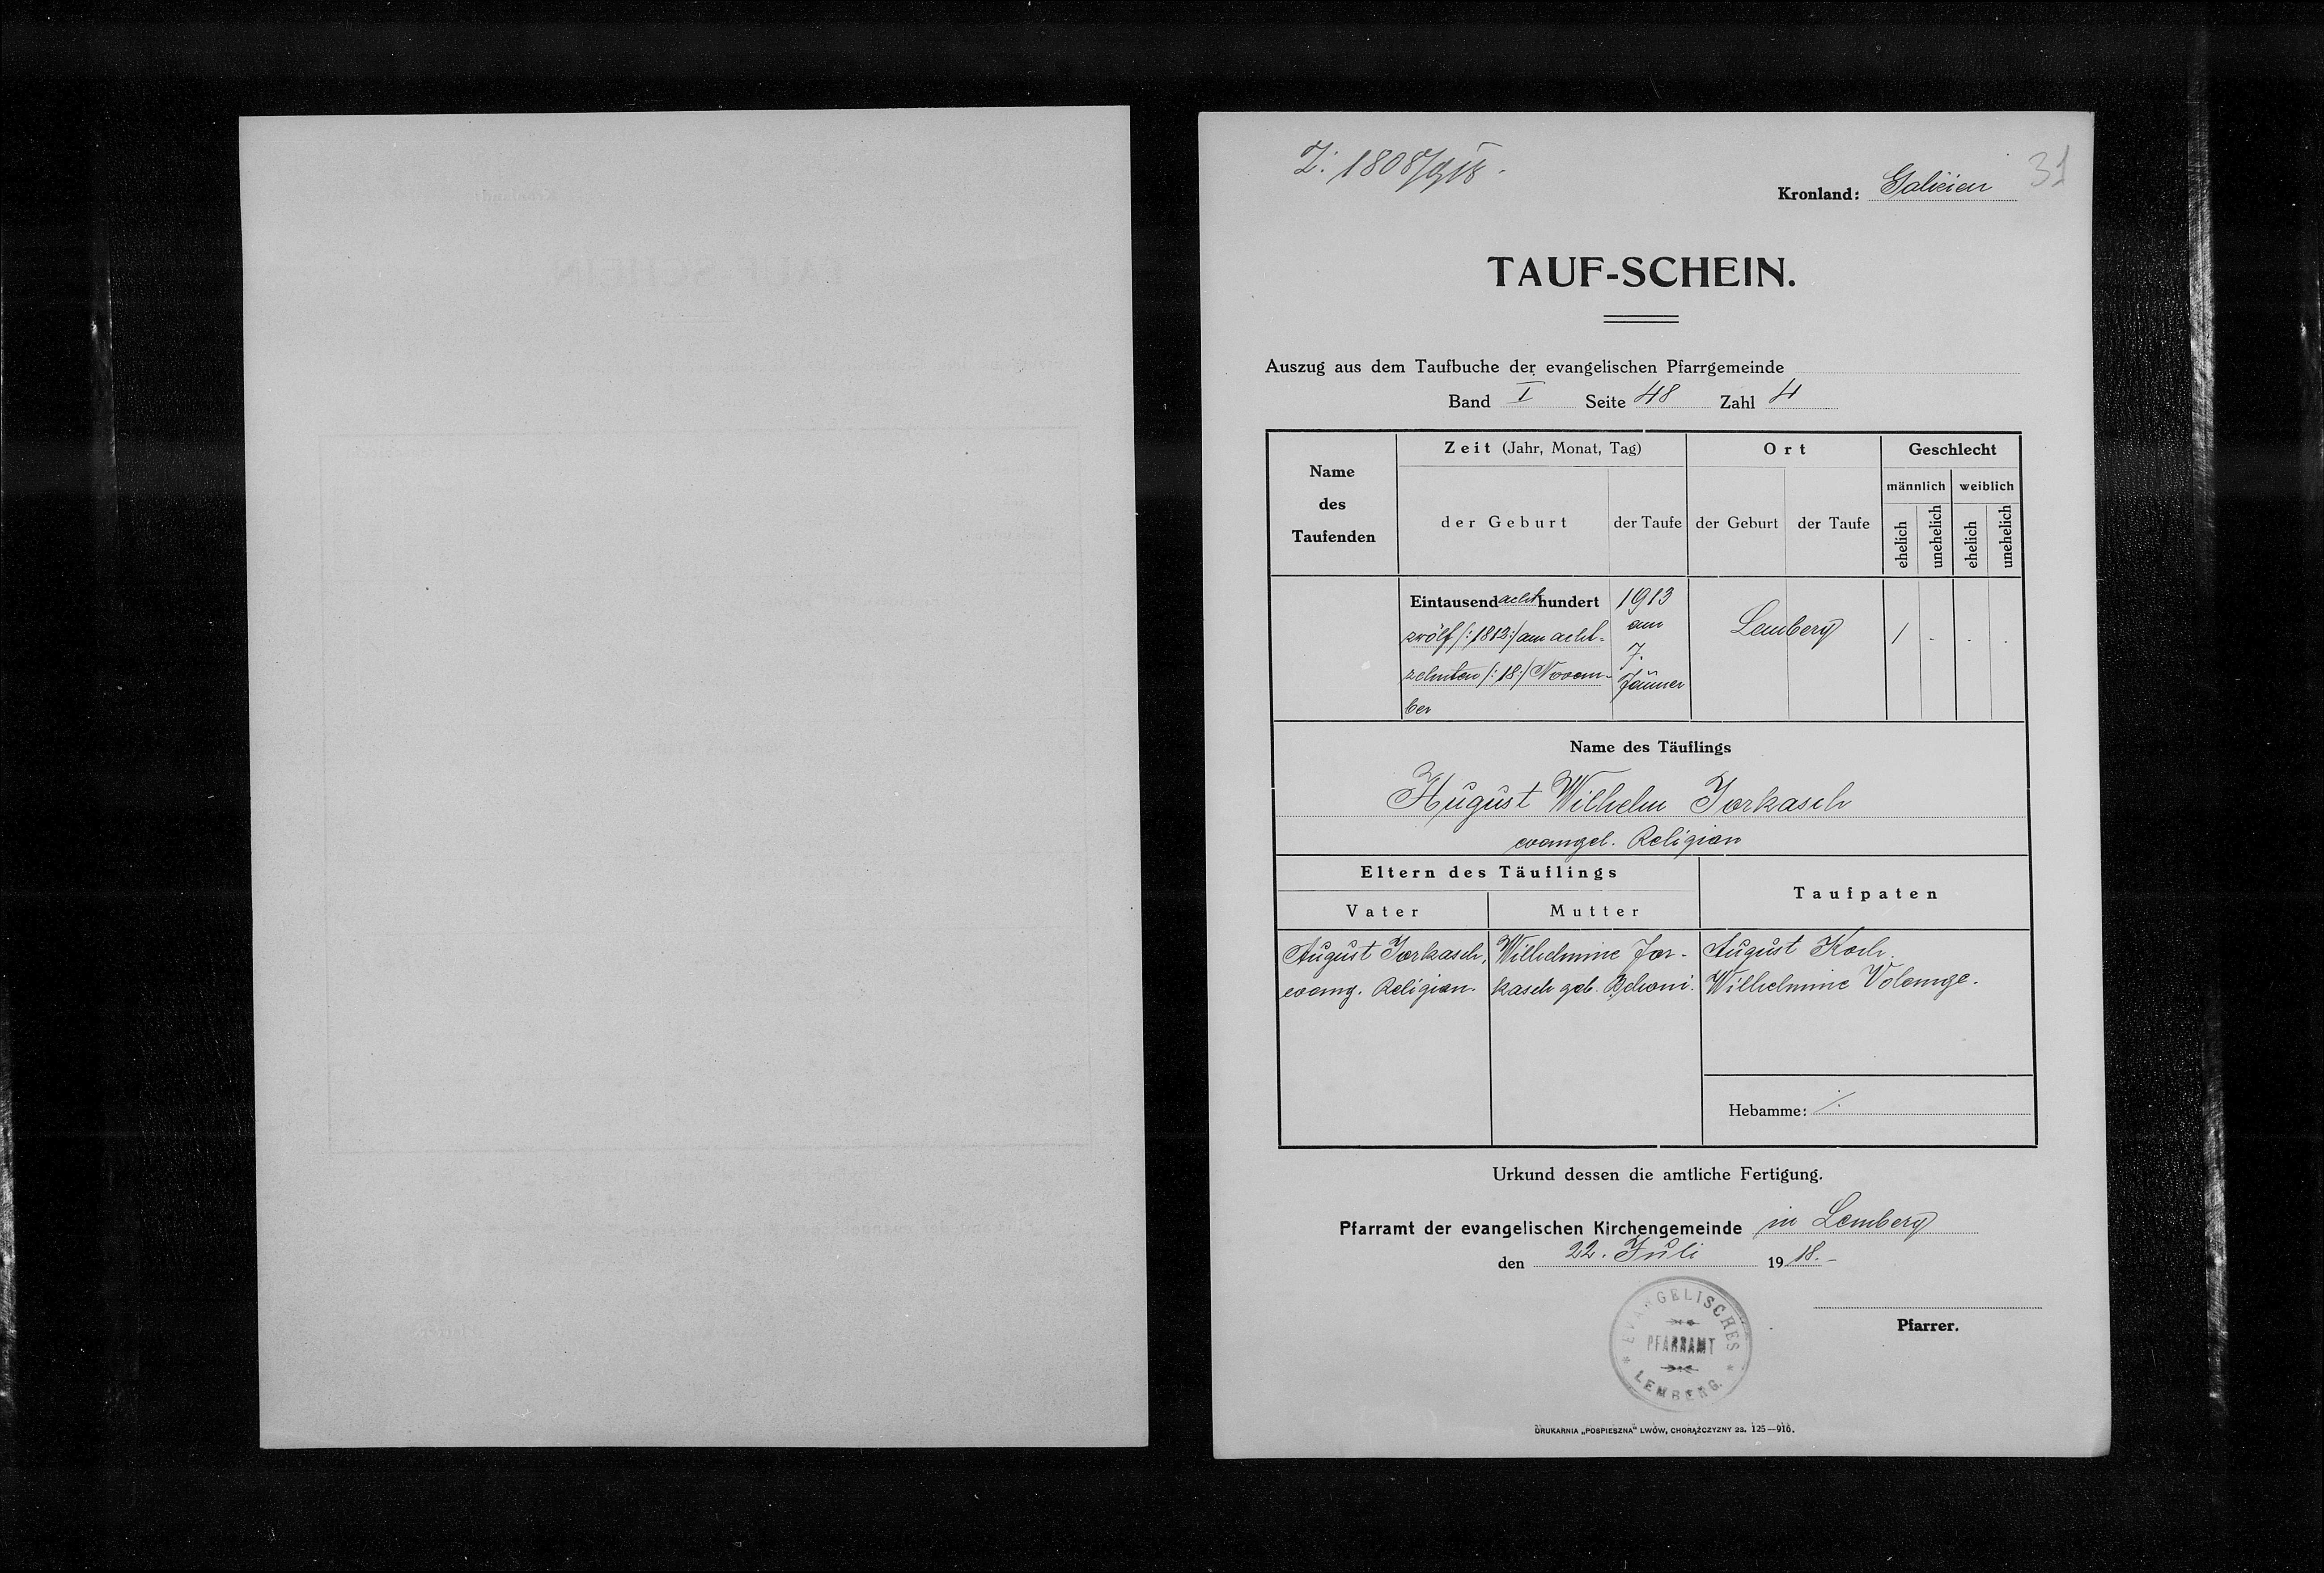 Z: 1808/918.
31
Kronland: Galizien
TAUF-SCHEIN.
Auszug aus dem Taufbuche der evangelischen Pfarrgemeinde
Band I Seite 48 Zahl 4
Name des Taufenden
Zeit (Jahr, Monat, Tag)
Ort
Geschlecht
männlich weiblich
der Geburt der Taufe der Geburt der Taufe
ehelich unehelich ehelich unehelich
Eintausend acht hundert
zwölf /:1812:/ am acht-
zehnten /:18:/ Novem-
ber
1913
am
7.
Jänner
Lemberg
/ - . .
Name des Täuflings
August Wilhelm Jorkasch
evangel. Religion
Eltern des Täuflings
Taufpaten
Vater Mutter
August Jorkasch,
evang. Religion.
Wilhelmine Jor-
kasch geb.
August Koch.
Wilhelmine
Hebamme: ⁒
Urkund dessen die amtliche Fertigung.
Pfarramt der evangelischen Kirchengemeinde in Lemberg
den 22. Juli 1918.-
EVANGELISCHES
PFARRAMT
LEMBERG.
Pfarrer.
DRUKARNIA „POSPIESZNA" LWÓW, CHORĄŻCZYZNY 23. 125—916.